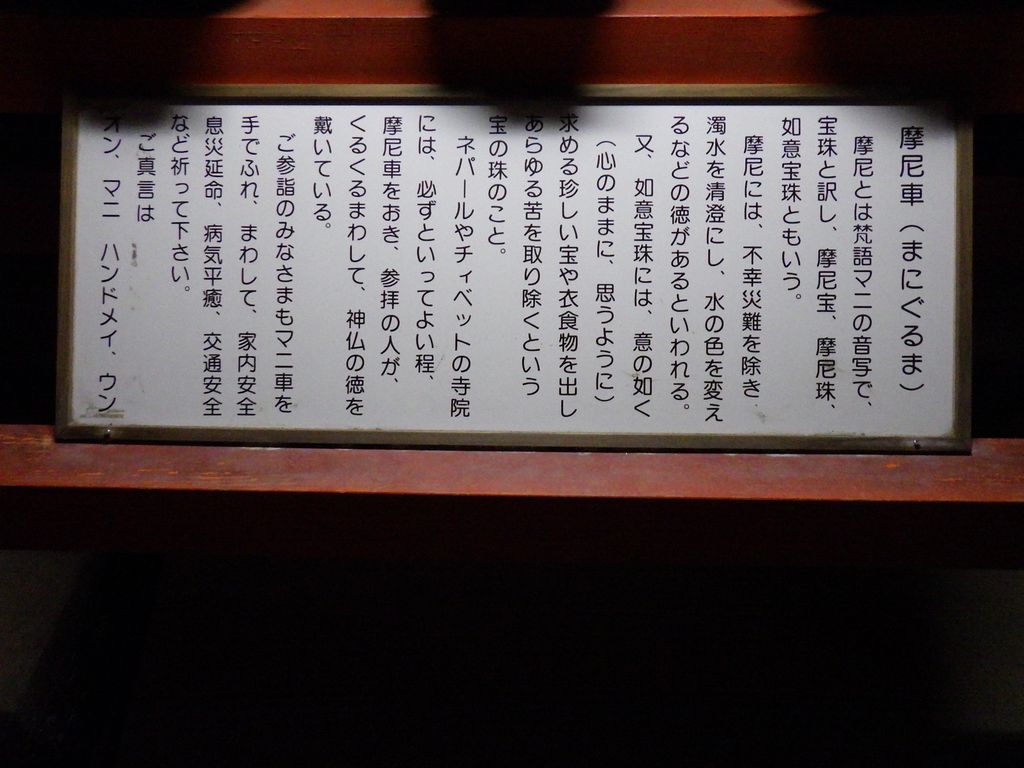 摩尼車(まにぐるま)
摩尼とは梵語マニの音写で、
宝珠と訳し、摩尼宝、摩尼珠、
如意宝珠ともいう。
摩尼には、不幸災難を除き、
濁水を清澄にし、水の色を変え
るなどの徳があるといわれる。
又、如意宝珠には、意の如く
(心のままに、思うように)
求める珍しい宝や衣食物を出し
あらゆる苦を取り除くという
宝の珠のこと。
ネパールやチィベットの寺院
には、必ずといってよい程、
摩尼車をおき、参拝の人が、
くるくるまわして、神仏の徳を
戴いている。
ご参詣のみなさまもマニ車を
手でふれ、まわして、家内安全
息災延命、病気平癒、交通安全
など祈って下さい。
ご真言は
オン、マニ ハンドメイ、ウン